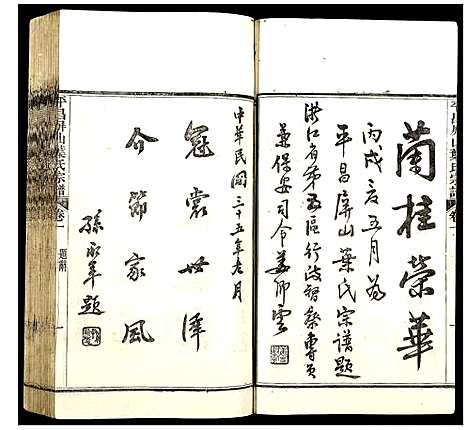 蘭桂榮華
丙戌立五月為
平昌屏山葉氏宗譜題
浙江省第 區行政督察專員
兼保安司令 卿雲
中華民國三十五年 月
冠裳世澤
介節家風
孫 題
平昌屏山葉氏宗譜 卷一 題辭 一
平昌屏山葉氏宗譜 卷一